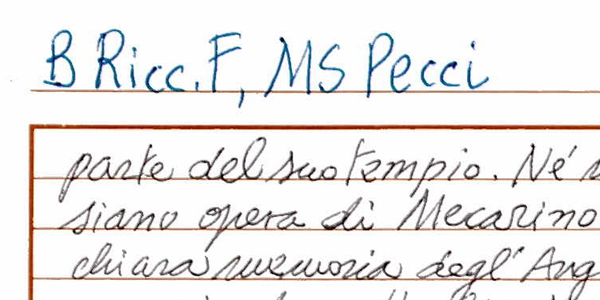 B Ricc. F, MS Pecci
parte del suo tempio. Né
siano opera di Mecarino
chiara memoria degl' Ang